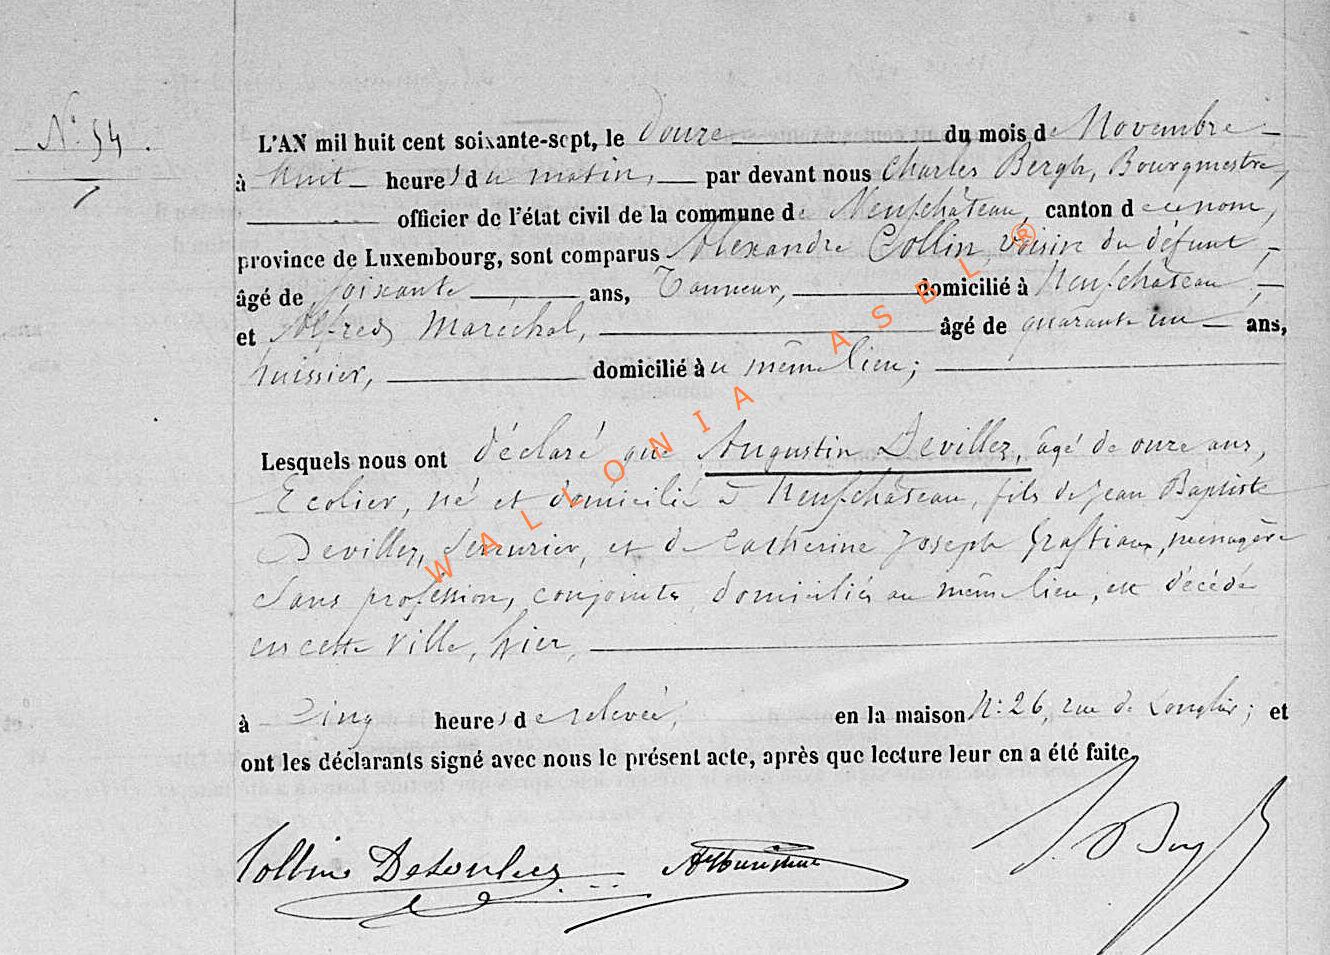 N° 54.
L'AN mil huit cent soixante-sept, le douze du mois de Novembre
à huit heures du matin, par devant nous Charles Bergh, Bourgmestre,
officier de l'état civil de la commune de Neufchâteau, canton de ce nom,
province de Luxembourg, sont comparus Alexandre Collin, voisin du défunt,
âgé de soixante ans, Tanneur, domicilié à Neufchâteau,
et Alfred Maréchal, âgé de quarante un ans,
huissier, domicilié au même lieu;
Lesquels nous ont déclaré que Augustin Devillez, âgé de onze ans,
Ecolier, né et domicilié à Neufchâteau, fils de Jean Baptiste
Devillez, Serrurier, et de Catherine Joseph Grastiaux, ménagère
sans profession, conjoints, domiciliés au même lieu, est décédé
en cette ville, hier,
à cinq heures de relevée, en la maison N° 26, rue de Longlier; et
ont les déclarants signé avec nous le présent acte, après que lecture leur en a été faite.
Collin
WALLONIA ASBL ®